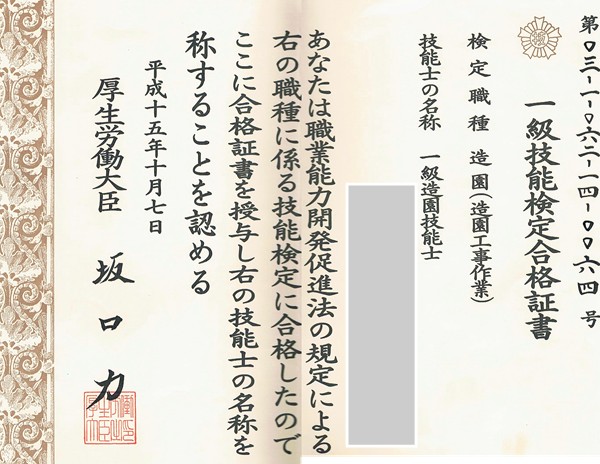 第０３-１-０６２-１４-００６４号
一級技能検定合格証書
検定職種 造園(造園工事作業)
技能士の名称 一級造園技能士
あなたは職業能力開発促進法の規定による
右の職種に係る技能検定に合格したので
ここに合格証書を授与し右の技能士の名称を
称することを認める
平成十五年十月七日
厚生労働大臣 坂口力